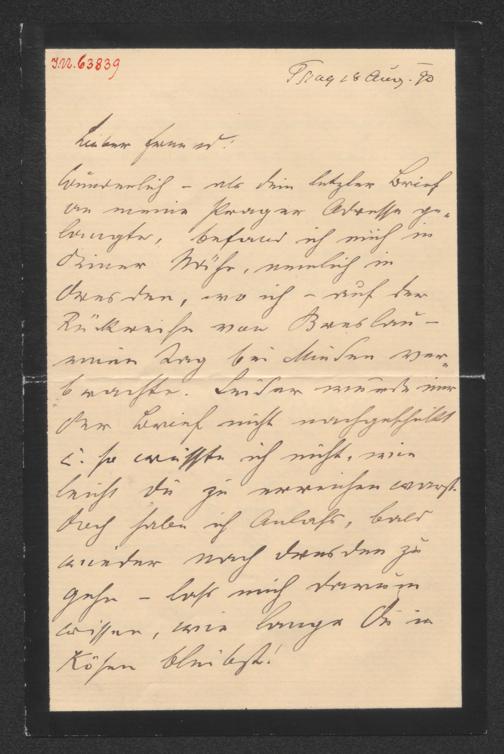 J.N. 63839
Prag 18 Aug. 90
Lieber Freund!
Wunderlich – als dein letzter Brief
an meine Prager Adresse ge-
langte, befand ich mich in
Deiner Nähe, nemlich in
Dresden, wo ich – auf der
Rückreise von Breslau –
einen Tag bei verbrachte. Leider wurde mir
der Brief nicht nachgeschickt
u. so wusste ich nicht, wie
leicht Du zu erreichen warst.
Doch habe ich Anlass, bald
wieder nach Dresden zu
gehn – lass mich darum
wissen, wie lange Du in
Kösen bleibst!